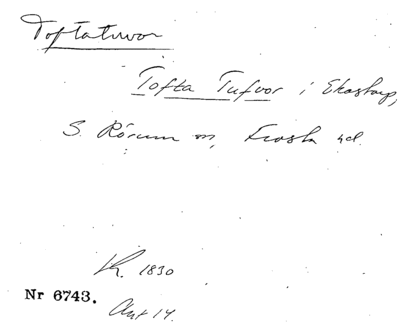 Toftatuvor
Tofta Tufvor i Ekastorp,
S. Rörum sn, Frosta hd.
Kr. 1830
Nr 6743.
Akt 14.